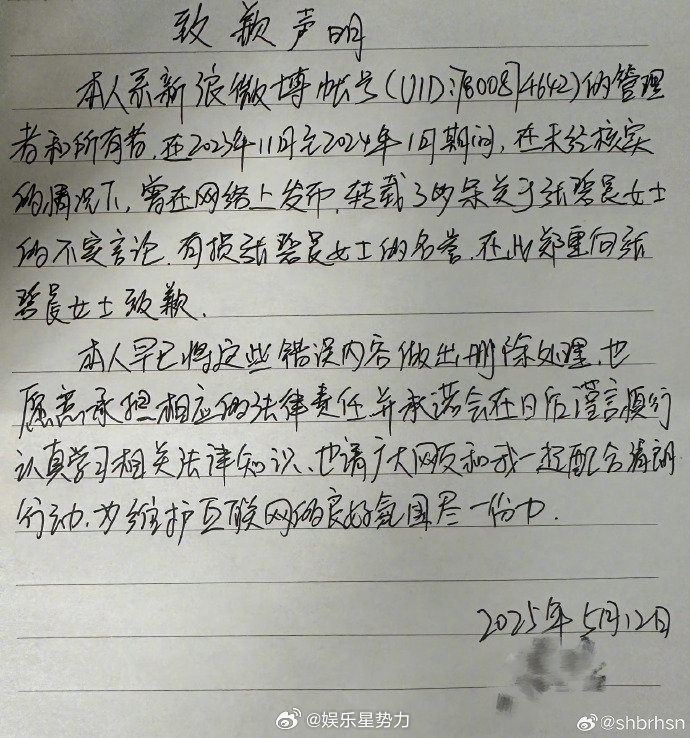 致歉声明
本人系新浪微博帐号(UID:7800874642)的管理
者和所有者,在2023年11月至2024年1月期间,在未经核实
的情况下,曾在网络上发布、转载了涉关于张碧晨女士
的不实言论,有损张碧晨女士的名誉,在此郑重向张
碧晨女士致歉.
本人早已将这些错误内容做出删除处理,也
愿意承担相应的法律责任并承诺会在日后谨言慎行
认真学习相关法律知识、也请广大网友和我一起配合清朗
行动,为维护互联网的良好氛围尽一份力.
2025年5月12日
@娱乐星势力
@shbrhsn